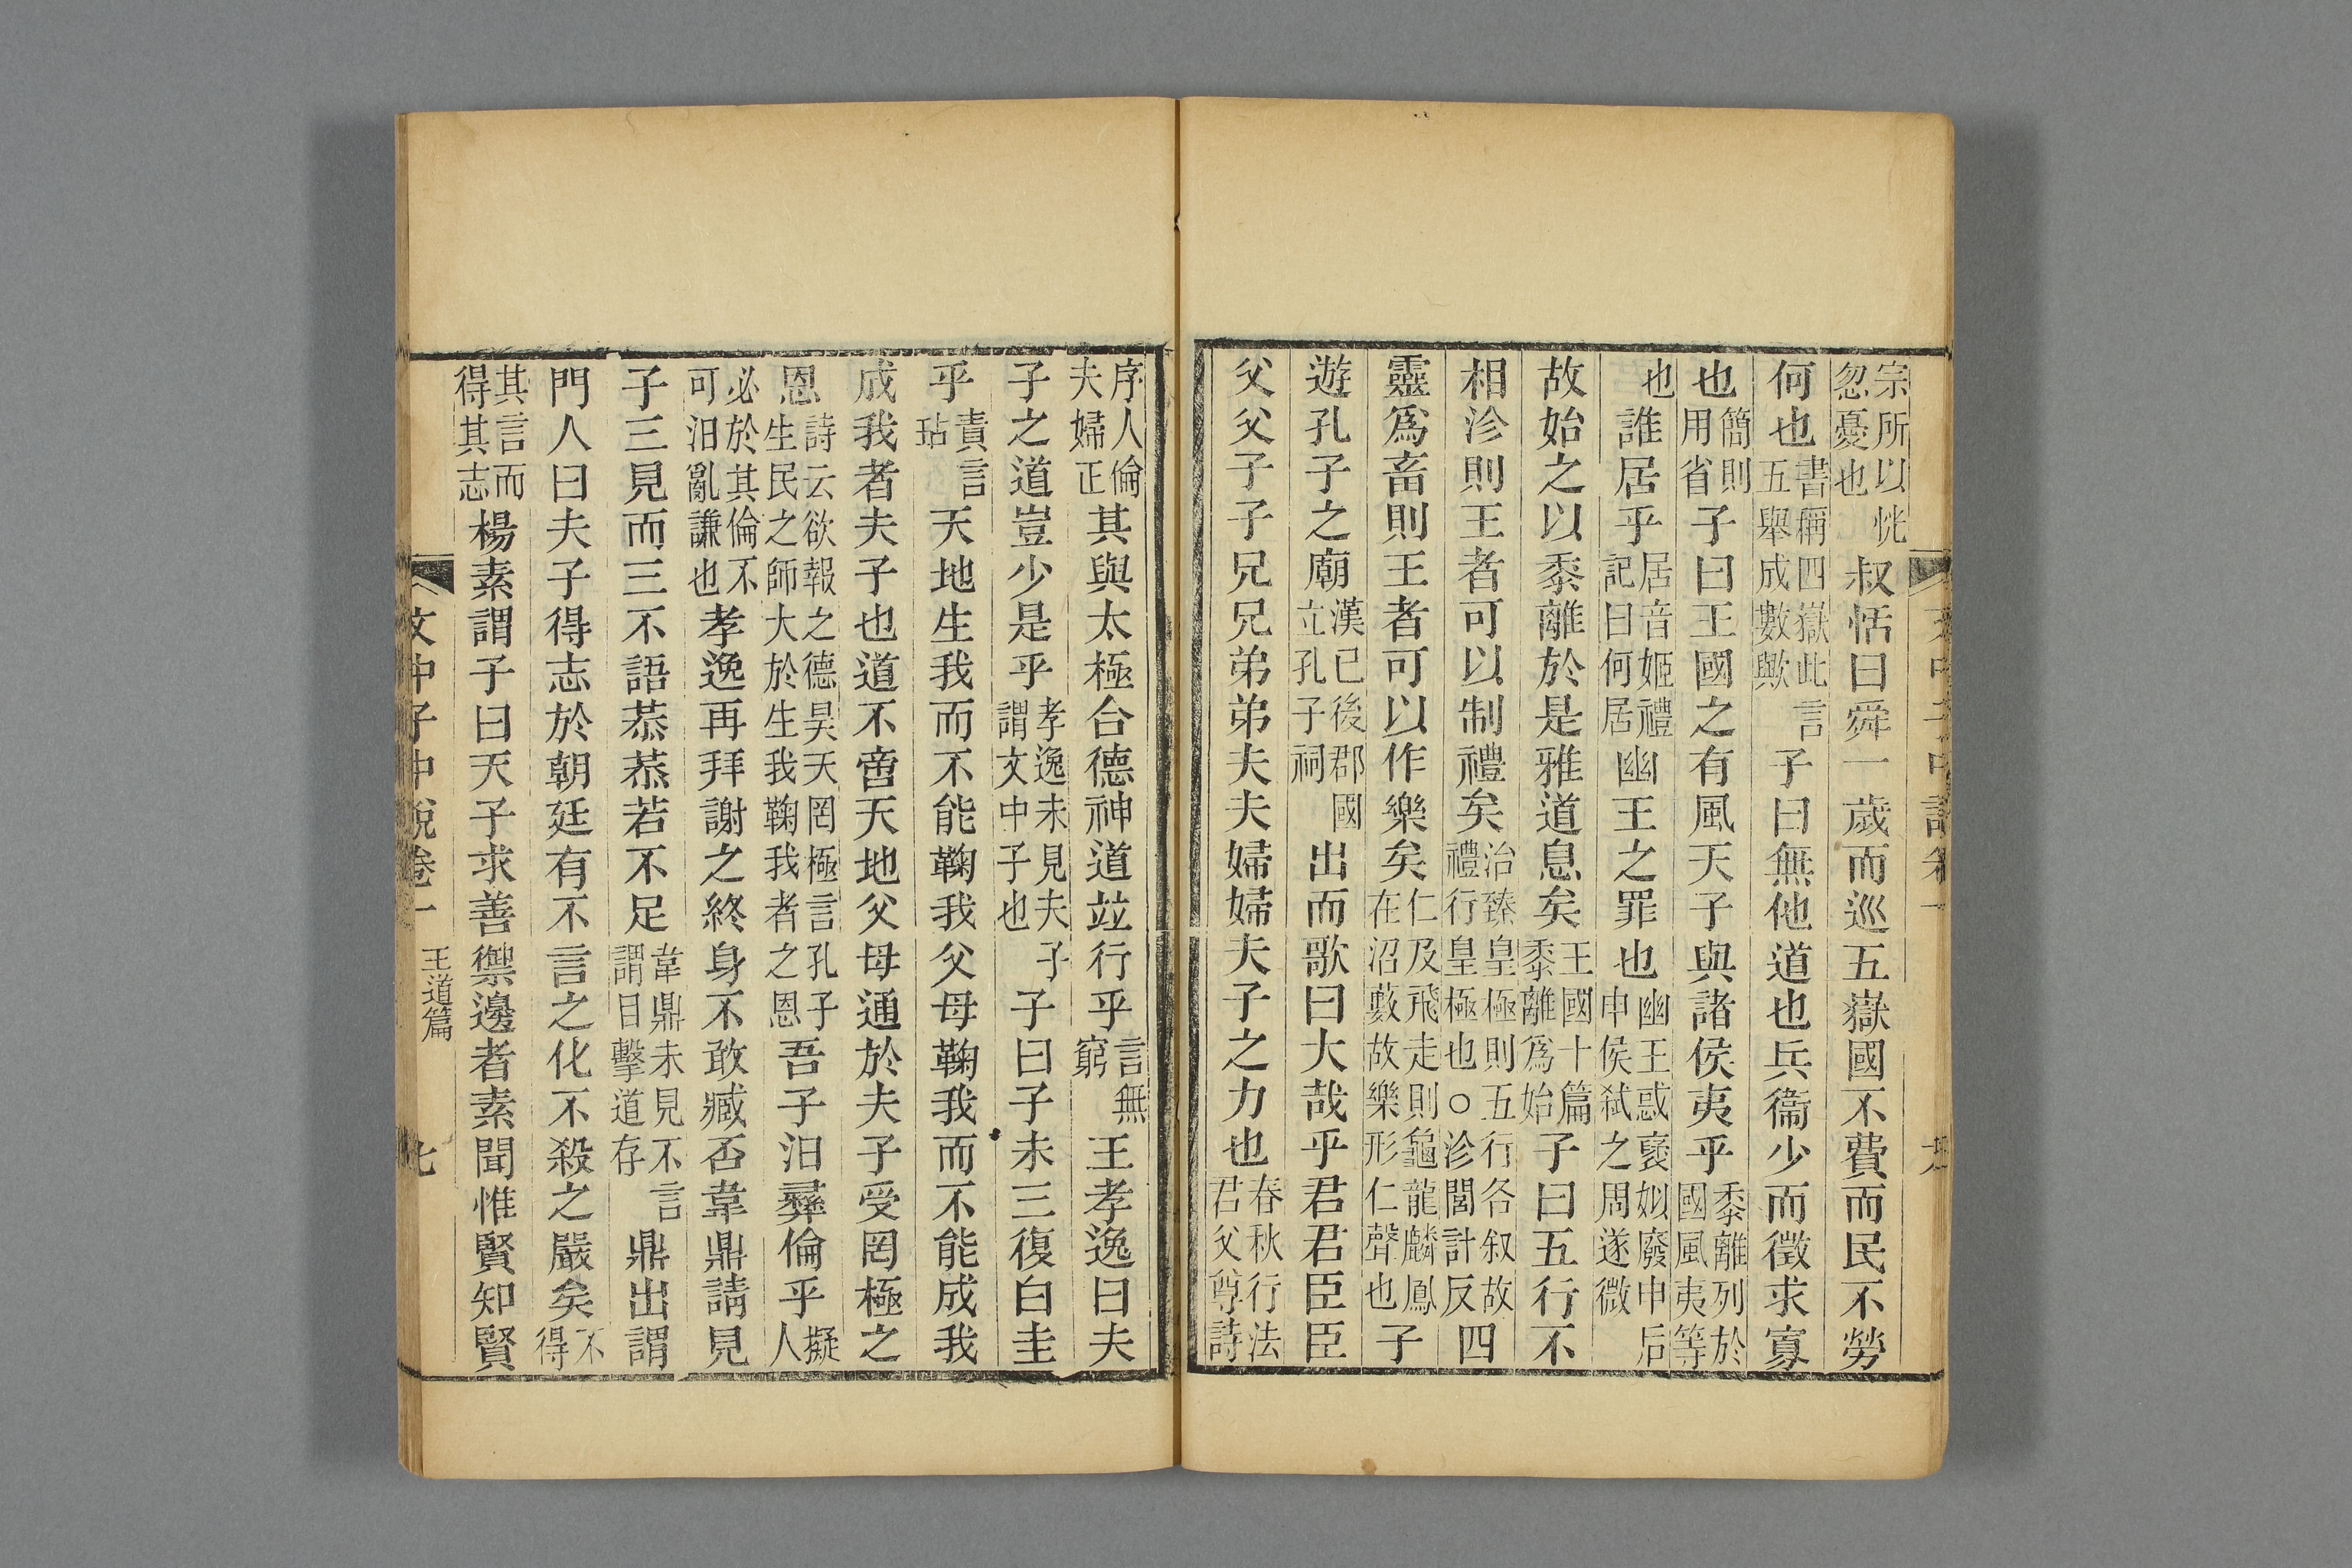 宗所以恍忽憂也叔恬曰舜一歲而巡五嶽國不費而民不勞
何也書稱四嶽此言五舉成數歟子曰無他道也兵衞少而徵求寡
也簡則用省子曰王國之有風天子與諸侯夷乎黍離列於國風夷等
也誰居乎居音姬禮記曰何居幽王之罪也幽王惑褒姒廢申后申侯弑之周遂微
故始之以黍離於是雅道息矣王國十篇黍離爲始子曰五行不
相沴則王者可以制禮矣治臻皇極則五行各叙故禮行皇極也○沴閭計反四
靈爲畜則王者可以作樂矣仁及飛走則龜龍麟鳳在沼藪故樂形仁聲也子
遊孔子之廟漢已後郡國立孔子祠出而歌曰大哉乎君君臣臣
父父子子兄兄弟弟夫夫婦婦夫子之力也春秋行法君父尊詩
序人倫夫婦正其與太極合德神道竝行乎言無窮王孝逸曰夫
子之道豈少是乎孝逸未見夫子謂文中子也子曰子未三復白圭
乎責言玷天地生我而不能鞠我父母鞠我而不能成我
成我者夫子也道不啻天地父母通於夫子受罔極之
恩詩云欲報之德昊天罔極言孔子生民之師大於生我鞠我者之恩吾子汩彛倫乎擬人
必於其倫不可汩亂謙也孝逸再拜謝之終身不敢臧否韋鼎請見
子三見而三不語恭恭若不足韋鼎未見不言謂目擊道存鼎出謂
門人曰夫子得志於朝廷有不言之化不殺之嚴矣不得
其言而得其志楊素謂子曰天子求善禦邊者素聞惟賢知賢
文中子中說卷一 王道篇 七